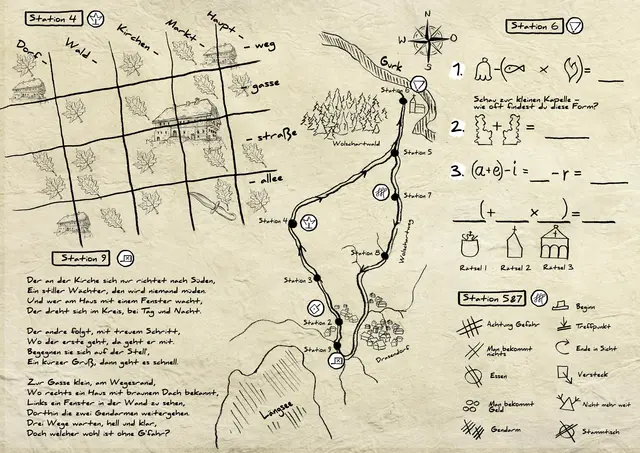 Station 4
Dorf-
Wald-
Kirchen-
Markt-
Haupt-
- weg
- gasse
- straße
- allee
Station 9
Der an der Kirche sich nur richtet nach Süden,
Ein stiller Wächter, den wird niemand müden.
Und wer am Haus mit einem Fenster wacht,
Der dreht sich im Kreis, bei Tag und Nacht.
Der andre folgt, mit treuem Schritt,
Wo der erste geht, da geht er mit.
Begegnen sie sich auf der Stell',
Ein kurzer Gruß, dann geht es schnell.
Zur Gasse klein, am Wegesrand,
Wo rechts ein Haus mit braunem Dach bekannt,
Links ein Fenster in der Wand zu sehen,
Dorthin die zwei Gendarmen weitergehen.
Drei Wege warten, hell und klar,
Doch welcher wohl ist ohne G'fahr?
N
W
O
S
Gurk
Station 6
Wolschartwald
Station 5
Station 7
Wolschartweg
Station 4
Station 8
Station 3
Station 2
Drasendorf
Längsee
Station 6
1. - ( x ) = __
Schau zur kleinen Kapelle -
wie oft findest du diese Form?
2. + = __
3. (a+e)-i = __ - r = __
__ (+ __ x __) = __
Rätsel 1
Rätsel 2
Rätsel 3
Station 5&7
Achtung Gefahr
Man bekommt
nichts
Essen
Man bekommt
Geld
Gendarm
Beginn
Treffpunkt
Ende in Sicht
Versteck
Nicht mehr weit
Stammtisch